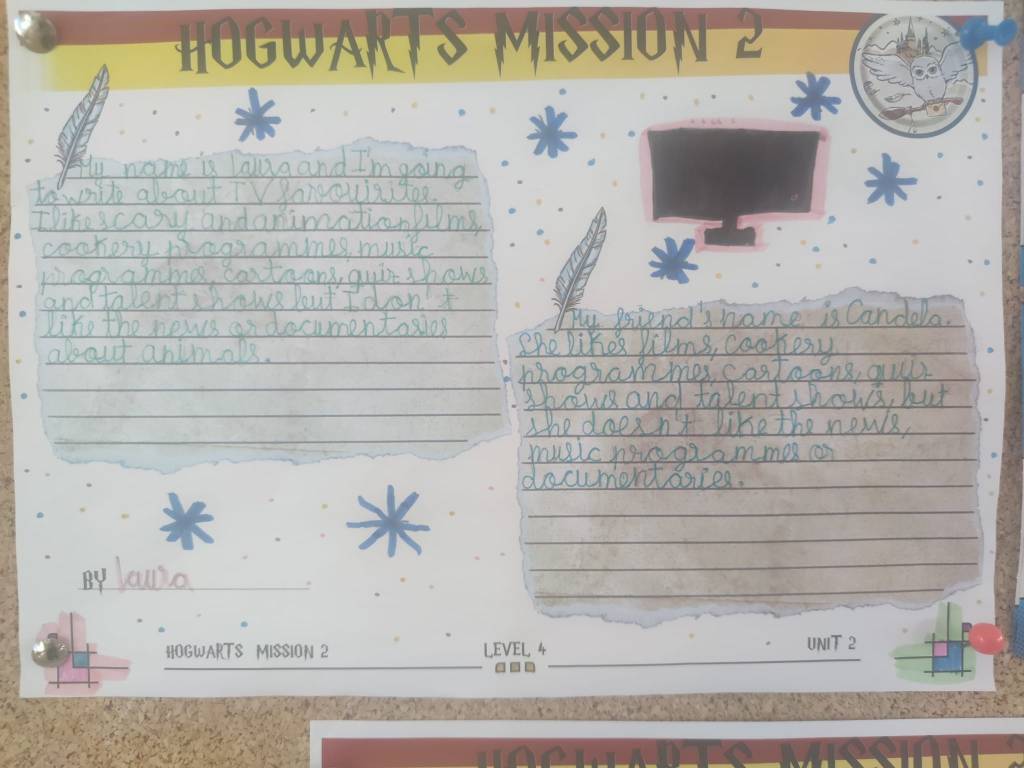 HOGWARTS MISSION 2
My name is laura and I'm going
to write about TV favouirites.
I like scary and animation films,
cookery programmes, music
programmes, cartoons, quiz shows
and talent shows but I don't
like the news or documentaries
about animals.
My friend's name is Candela.
She likes films, cookery
programmes, cartoons, quiz
shows and talent shows, but
she doesn't like the news,
music programmes or
documentaries.
BY laura
HOGWARTS MISSION 2
LEVEL 4
UNIT 2
HOGWARTS MISSION 2